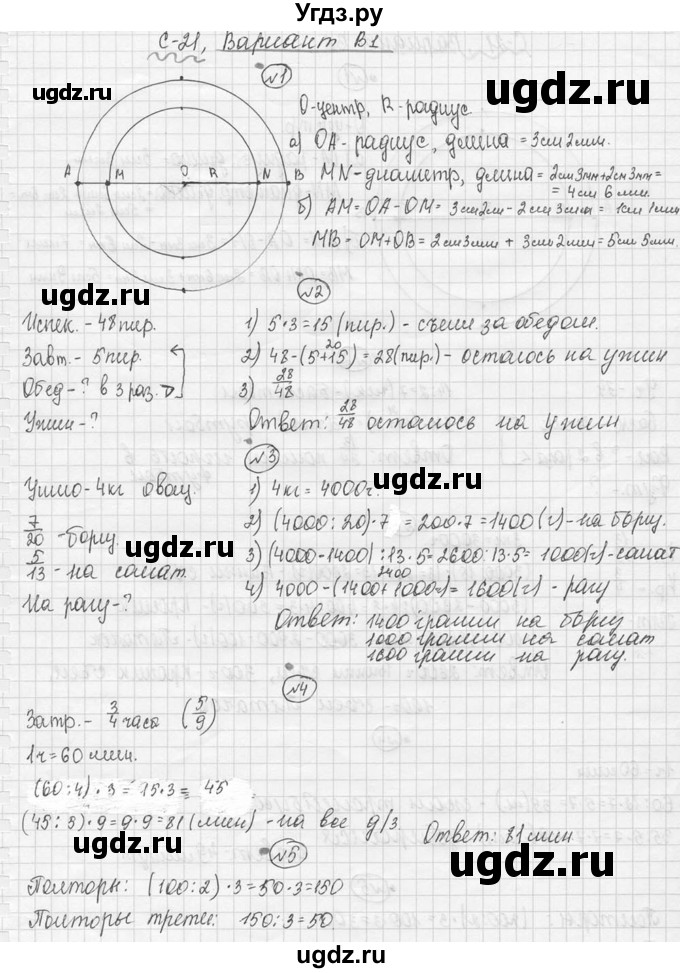 Угдз.ру
С-21, Вариант В1
№1
О-центр, R-радиус
а) ОА-радиус, длина = 3см 2мм.
A M O R N B
MN-диаметр, длина = 2см 3мм + 2см 3мм =
= 4см 6мм.
б) AM = OA - OM = 3см 2мм - 2см 3мм = 1см 1мм
MB = OM + OB = 2см 3мм + 3см 2мм = 5см 5мм.
№2
Испек. - 48 пир.
Завт. - 5 пир.
Обед - ? в 3 раз.
Ужин - ?
1) 5·3=15 (пир.) - съели за обедом.
2) 48-(5+15) = 28 (пир.) - осталось на ужин
20
3) 28/48
Ответ: 28/48 осталось на ужин
№3
Ушло - 4кг овощ.
7/20 - борщ.
5/13 - на салат
На рагу - ?
1) 4кг = 4000г.
2) (4000:20)·7 = 200·7 = 1400 (г) - на борщ.
3) (4000-1400):13·5 = 2600:13·5 = 1000 (г) - салат
2400
4) 4000-(1400+1000) = 1600 (г) - рагу
Ответ: 1400 грамм на борщ
1000 грамм на салат
1600 грамм на рагу.
№4
Затр. - 3/4 часа (5/9)
1ч = 60 мин.
(60:4)·3 = 15·3 = 45
(45:5)·9 = 9·9 = 81 (мин) - на все д/з
Ответ: 81 мин
№5
Полторы: (100:2)·3 = 50·3 = 150
Полторы трети: 150:3 = 50
ugdz.ru
ugdz.ru
ugdz.ru
ugdz.ru
ugdz.ru
ugdz.ru
ugdz.ru
ugdz.ru
ugdz.ru
ugdz.ru
ugdz.ru
ugdz.ru